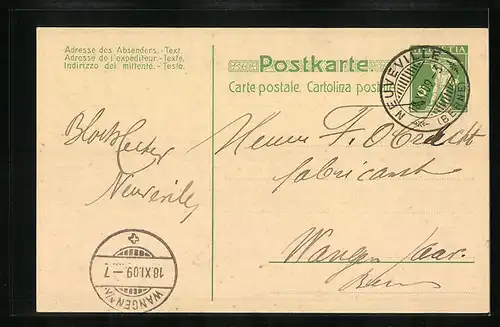 Adresse des Absenders. - Text.
Adresse de l'expéditeur. - Texte.
Indirizzo del mittente. - Testo.
Postkarte
Carte postale. Cartolina post
NEUVEVILLE
(BERNE)
Neuveville
Herrn F. Obrecht
fabricant
Wangen
Bern
WANGEN
18.XI.09 — 7